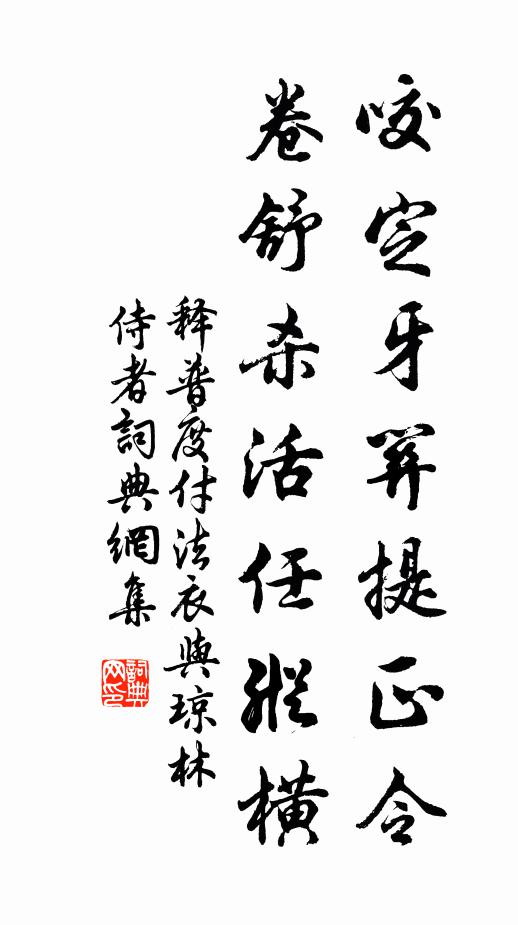 咬定牙関提正令
卷舒杀活任縱橫
释普度付法衣與琼林
侍者詞典網集
詞典网印